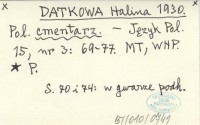 DATKOWA Halina 1930.
Pol. cmentarz. – Język Pol.
15, nr 3: 69-77. MT, WNP.
* P.
S. 70 i 74: w gwarze podh.
BT/010/0949